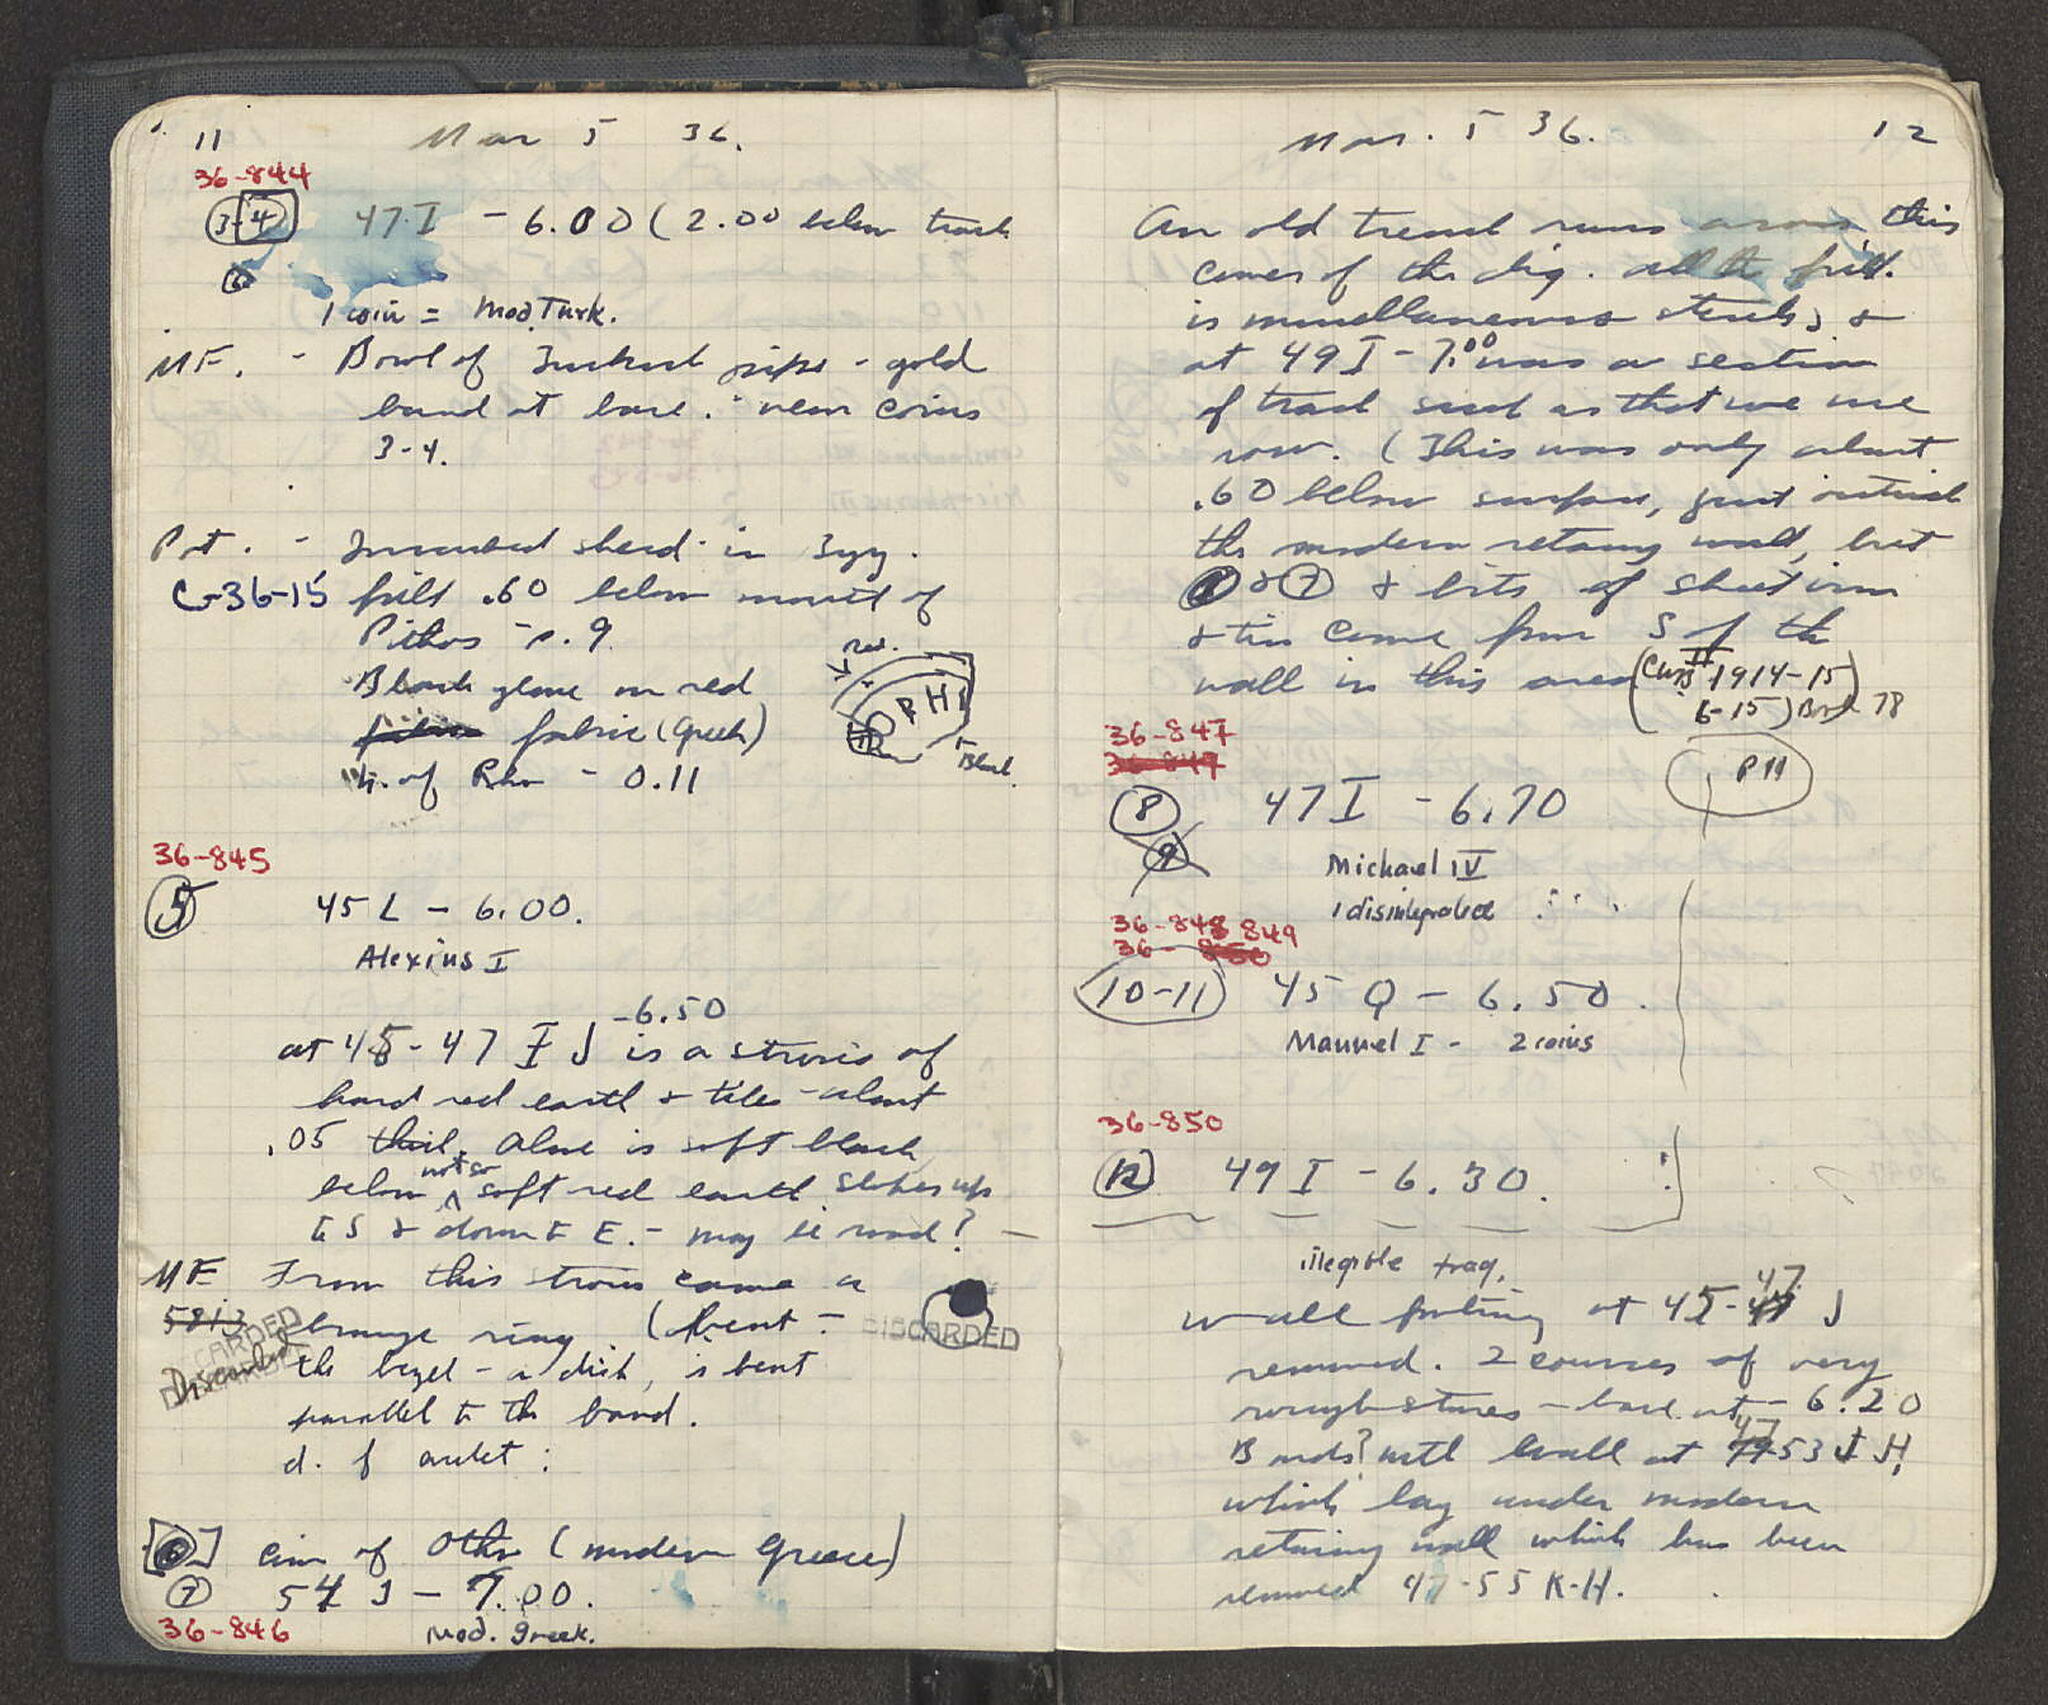 11 Mar 5 36.
36-844
3-4 47 I - 6.00 (2.00 below track
6
1 coin = Mod. Turk.
MF. - Bowl of Turkish pipe - gold
band at base. near coins
3-4.
Pot. - Inscribed sherd in Byz.
C-36-15 fill .60 below mouth of
Pithos - p. 9
Black glaze on red
fabric (Greek)
H. of Rho - 0.11
red.
ORHI
Black
36-845
5 45 L - 6.00.
Alexius I
-6.50
at 45-47 I J is a strosis of
hard red earth & tiles - about
.05 thick. Above is soft black
below not so soft red earth slopes up
to S & down to E. - may be road? -
MF From this strosis came a
5813 bronze ring. (bent -
DISCARDED
Discarded the bezel - a disk, is bent
DISCARDED
parallel to the band.
d. of outlet :
6 coin of Otho (modern Greece)
7 54 J - 7.00.
36-846 Mod. Greek.
Mar. 5 36. 12
An old trench runs across this
corner of the dig. All the fill
is miscellaneous sherds, &
at 49 I - 7.00 was a section
of track such as that we use
now. (This was only about
.60 below surface, just outside
the modern retaing wall, but
6 & 7 & bits of sheet iron
& tin come from S of the
wall in this area (Coins 1914-15
6-15) Book 78
P 11
36-847
36-847
8 47 I - 6.70
9
Michael IV
1 disintegrated
36-848 849
36-850
10-11 45 Q - 6.50.
Manuel I - 2 coins
36-850
12 49 I - 6.30.
illegible frag.
wall footing at 45-47 J
removed. 2 courses of very
rough stones - base at - 6.20
Bonds? with wall at 47-53 J H,
which lay under modern
retaing wall which has been
removed 47-55 K-H.